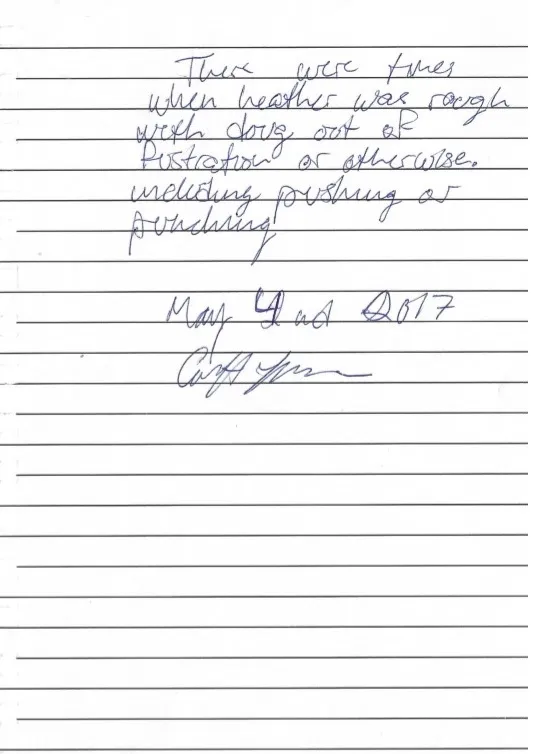 There were times
when heather was rough
with doug out of
fustration or otherwise.
including pushing or
punching
May 2nd 2017